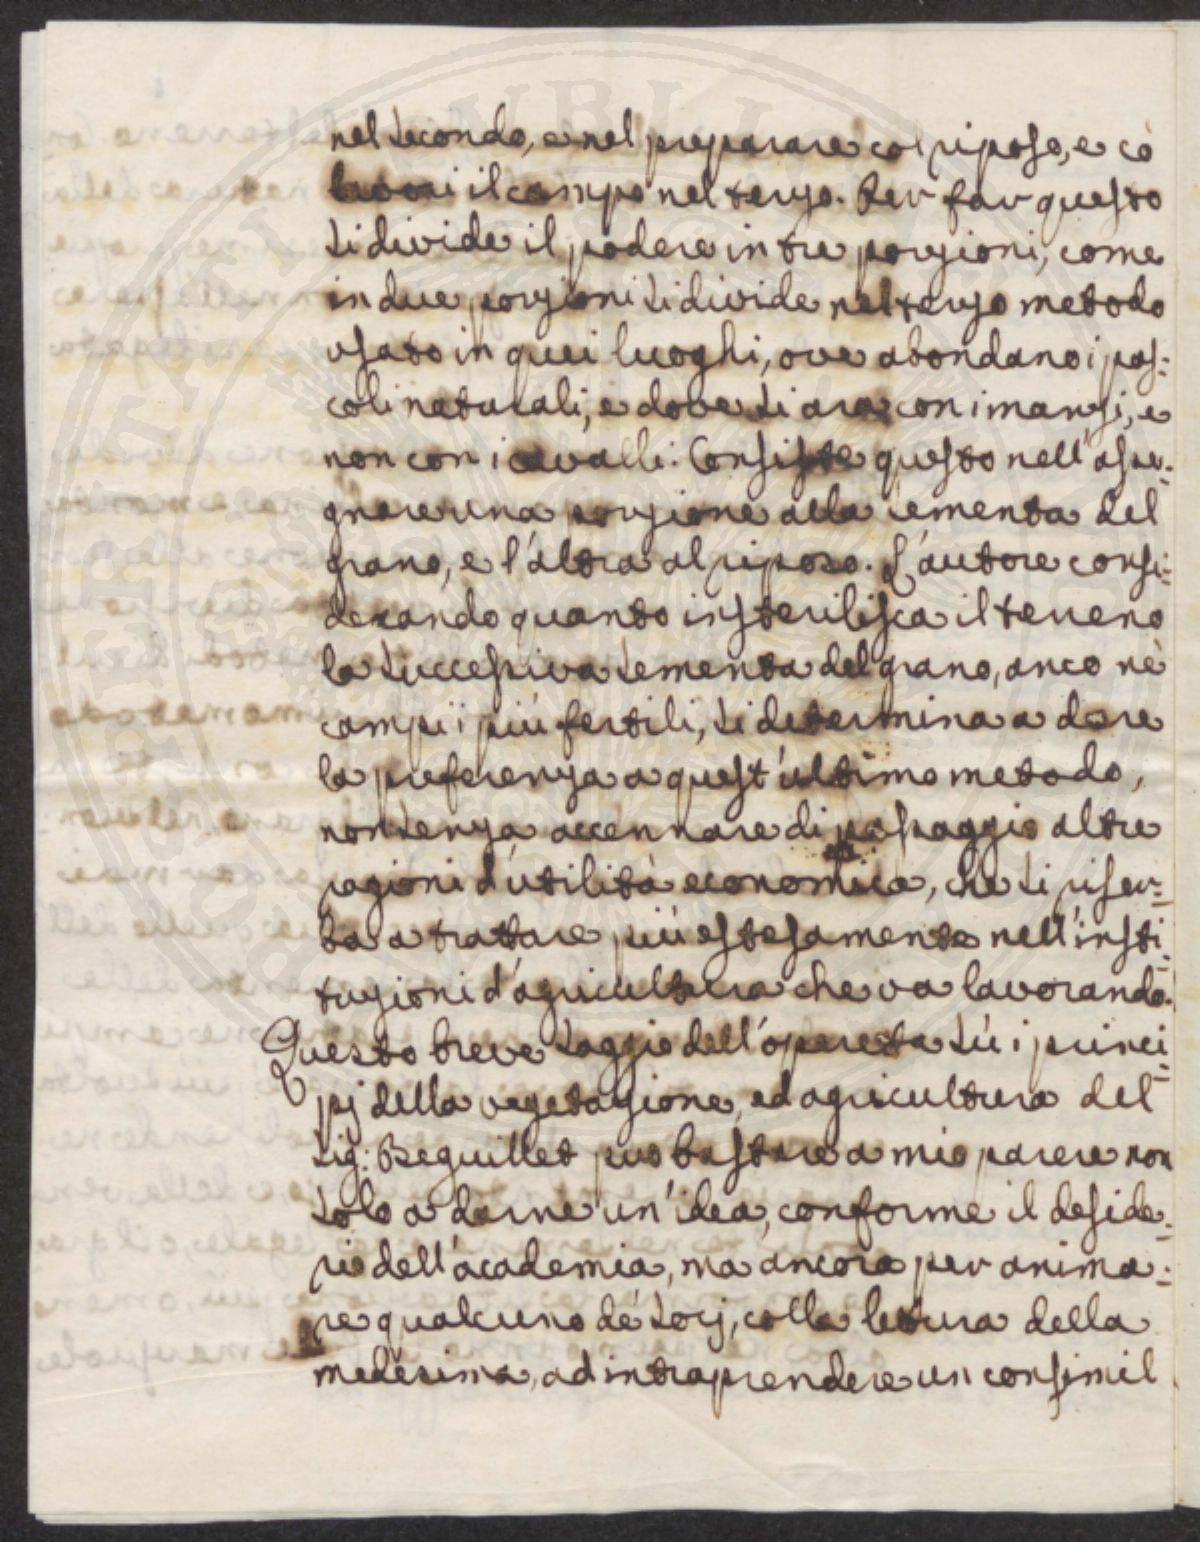 nel secondo, e nel preparare col riposo, e cò
lavori il campo nel terzo. Per far questo
si divide il podere in tre porzioni, come
in due porzioni si divide nel terzo metodo
usato in quei luoghi, ove abondano i pas-
coli naturali, e dove si ara con i manzi, e
non con i cavalli. Consiste questo nell'asse-
gnare una porzione alla sementa del
grano, e l'altra al riposo. L'autore consi-
derando quanto insterilisca il terreno
la successiva sementa del grano, anco nè
campi i più fertili, si determina a dare
la preferenza a quest'ultimo metodo,
non senza accennare di passaggio altre
ragioni d'utilità economica, che si riser-
ba a trattare più estesamente nell'insti-
tuzioni d'agricultura che va lavorando.
Questo breve saggio dell'opereta sù i princi-
pj della vegetazione, ed agricultura del
sig: Beguillet può bastare a mio parere non
solo a darne un'idea, conforme il deside-
rio dell'academia, ma ancora per anima-
re qualcuno dé socj, colla letura della
medesima, ad intraprendere un consimil